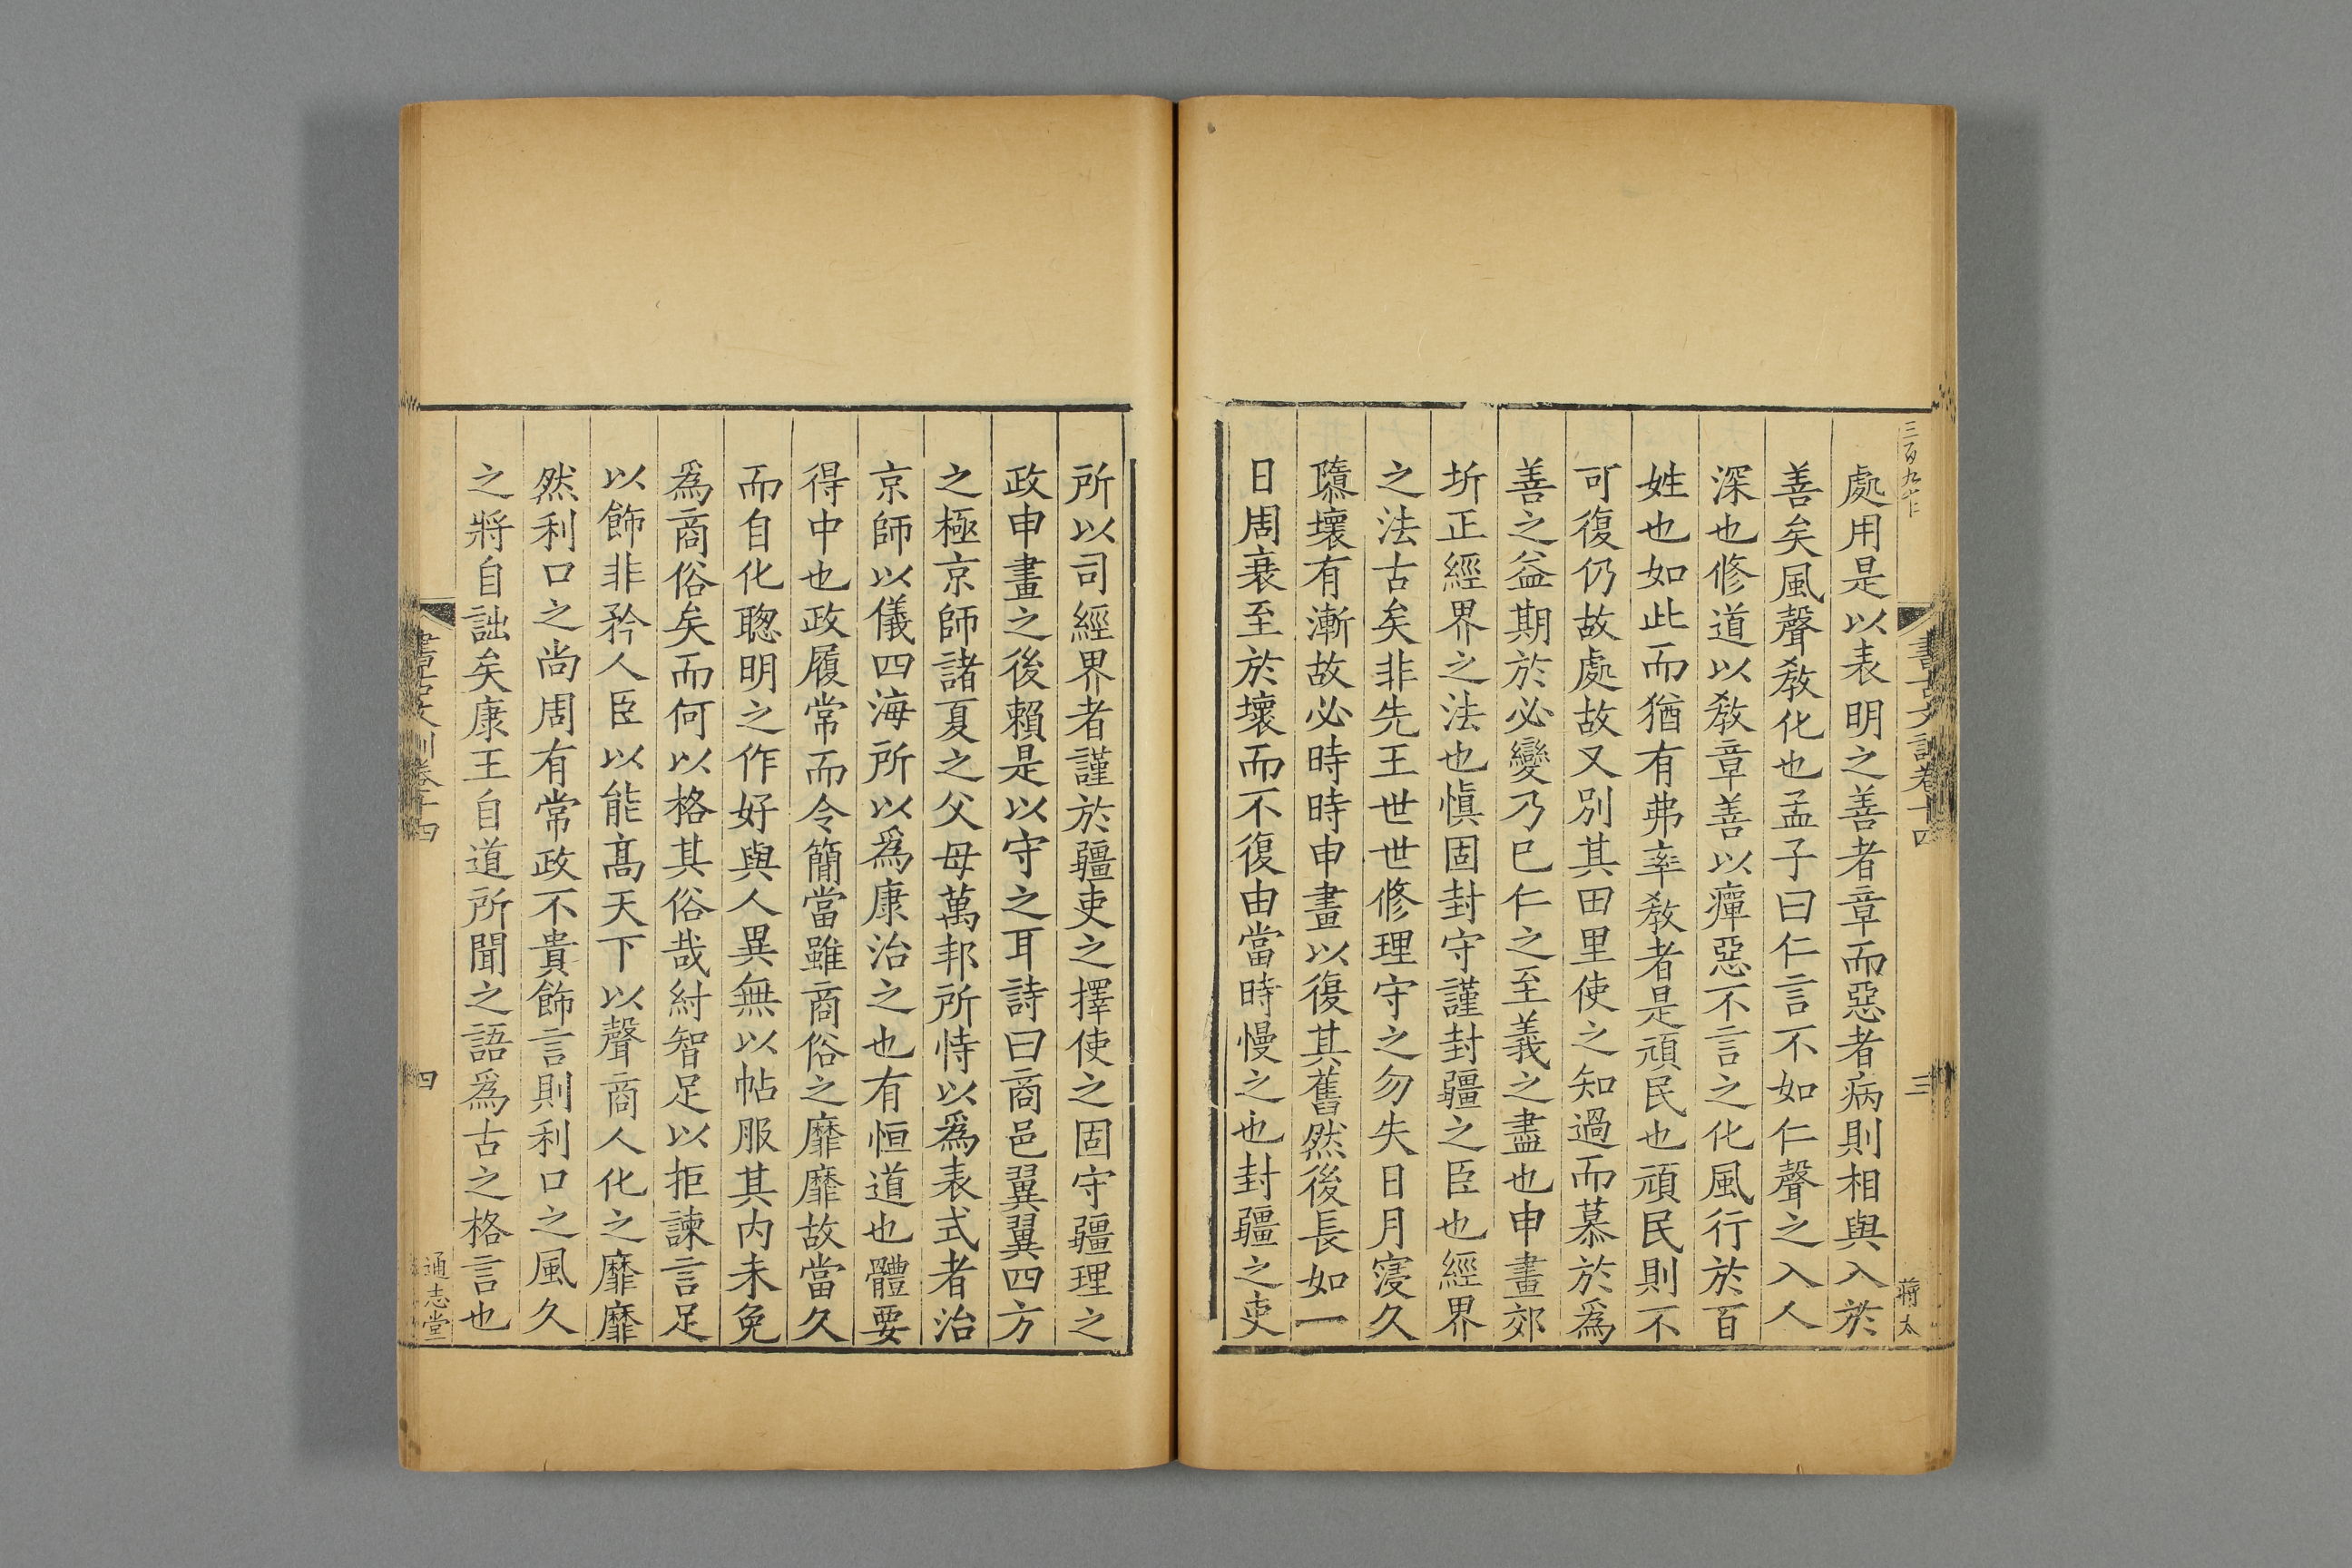 處用是以表明之善者章而惡者病則相與入於
善矣風聲敎化也孟子曰仁言不如仁聲之入人
深也修道以敎章善以癉惡不言之化風行於百
姓也如此而猶有弗率敎者是頑民也頑民則不
可復仍故處故又別其田里使之知過而慕於爲
善之益期於必變乃已仁之至義之盡也申畫郊
圻正經界之法也愼固封守謹封疆之臣也經界
之法古矣非先王世世修理守之勿失日月寖久
隳壞有漸故必時時申畫以復其舊然後長如一
日周衰至於壞而不復由當時慢之也封疆之吏
書古文訓卷十四
三
蔣太
所以司經界者謹於疆吏之擇使之固守疆理之
政申畫之後賴是以守之耳詩曰商邑翼翼四方
之極京師諸夏之父母萬邦所恃以爲表式者治
京師以儀四海所以爲康治之也有恒道也體要
得中也政履常而令簡當雖商俗之靡靡故當久
而自化聰明之作好與人異無以帖服其内未免
爲商俗矣而何以格其俗哉紂智足以拒諫言足
以飾非矜人臣以能高天下以聲商人化之靡靡
然利口之尚周有常政不貴飾言則利口之風久
之將自詘矣康王自道所聞之語爲古之格言也
書古文訓卷十四
四
通志堂